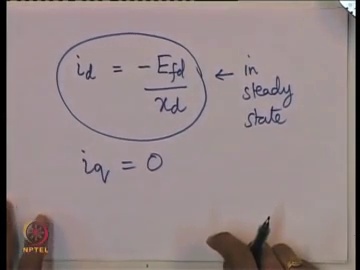 i_d = -E_fd / x_d ← in steady state
i_q = 0
NPTEL